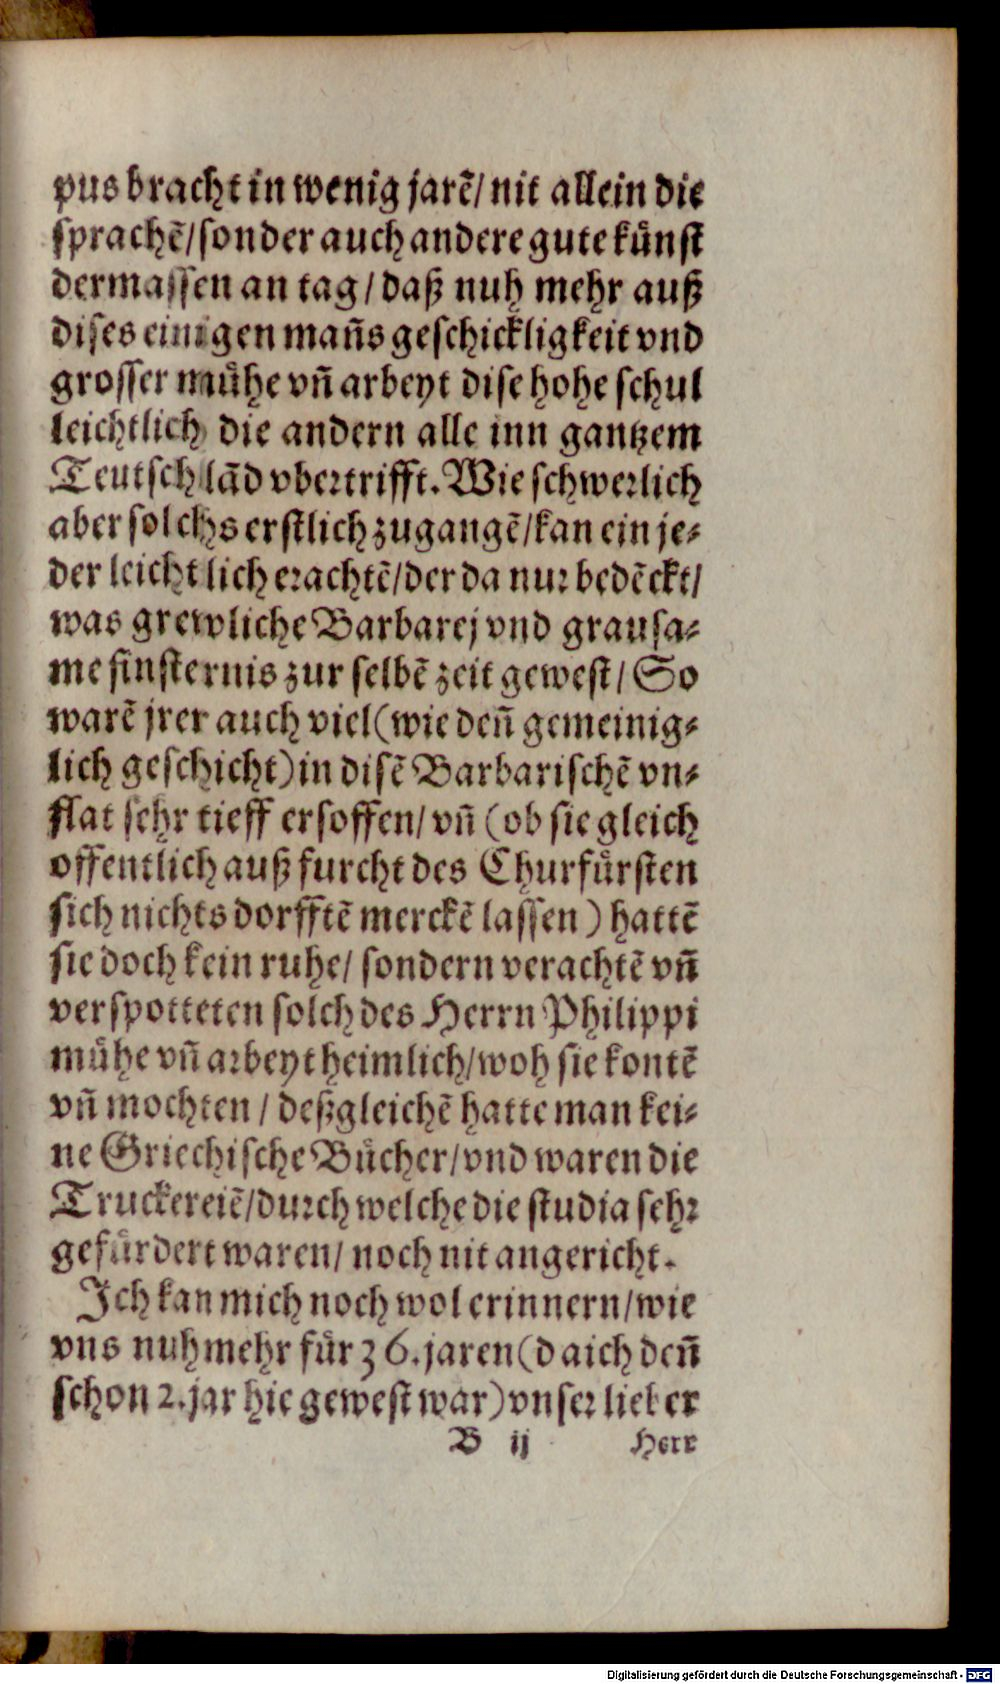 pus bracht in wenig jarē/ nit allein die
sprachē/ sonder auch andere gute künst
dermassen an tag/ daß nuh mehr auß
dises einigen man̄s geschickligkeit vnd
grosser mühe vn̄ arbeyt dise hohe schul
leichtlich die andern alle inn gantzem
Teutschlād vbertrifft. Wie schwerlich
aber solchs erstlich zugangē/ kan ein je-
der leichtlich erachtē/ der da nur bedēckt/
was grewliche Barbarej vnd grausa-
me finsternis zur selbē zeit gewest/ So
warē jrer auch viel (wie den̄ gemeinig-
lich geschicht) in disē Barbarischē vn-
flat sehr tieff ersoffen/ vn̄ (ob sie gleich
offentlich auß furcht des Churfürsten
sich nichts dorfftē merckē lassen) hattē
sie doch kein ruhe/ sondern verachtē vn̄
verspotteten solch des Herrn Philippi
mühe vn̄ arbeyt heimlich/ woh sie kontē
vn̄ mochten/ deßgleichē hatte man kei-
ne Griechische Bücher/ vnd waren die
Truckereiē/ durch welche die studia sehr
gefürdert waren/ noch nit angericht.
Ich kan mich noch wol erinnern/ wie
vns nuhmehr für 36. jaren (da ich den̄
schon 2. jar hie gewest war) vnser lieber
B ij Herr
Digitalisierung gefördert durch die Deutsche Forschungsgemeinschaft - DFG